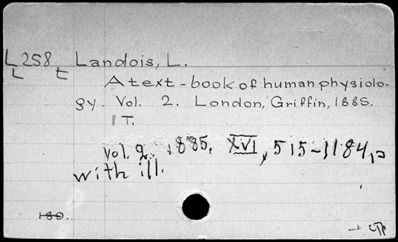 L258t Landois, L.
L
A text-book of human physiolo-
gy. Vol. 2. London, Griffin, 1885.
1 T.
vol. 2. 1885. XVI, 515-1184, p
with ill.
180.